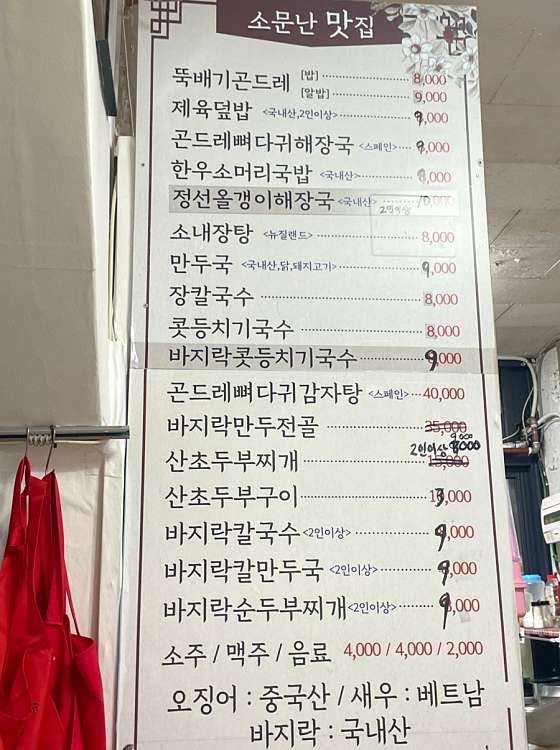 소문난 맛집
뚝배기곤드레 [밥] 8,000
[알밥] 9,000
제육덮밥 <국내산,2인이상> 9,000
곤드레뼈다귀해장국 <스페인> 9,000
한우소머리국밥 <국내산> 8,000
정선올갱이해장국 <국내산> 10,000
2인이상
소내장탕 <뉴질랜드> 8,000
만두국 <국내산,닭,돼지고기> 9,000
장칼국수 8,000
콧등치기국수 8,000
바지락콧등치기국수 9,000
곤드레뼈다귀감자탕 <스페인> 40,000
바지락만두전골 35,000
9,000
산초두부찌개 2인이상 13,000
산초두부구이 13,000
바지락칼국수 <2인이상> 9,000
바지락칼만두국 <2인이상> 9,000
바지락순두부찌개 <2인이상> 9,000
소주 / 맥주 / 음료 4,000 / 4,000 / 2,000
오징어 : 중국산 / 새우 : 베트남
바지락 : 국내산